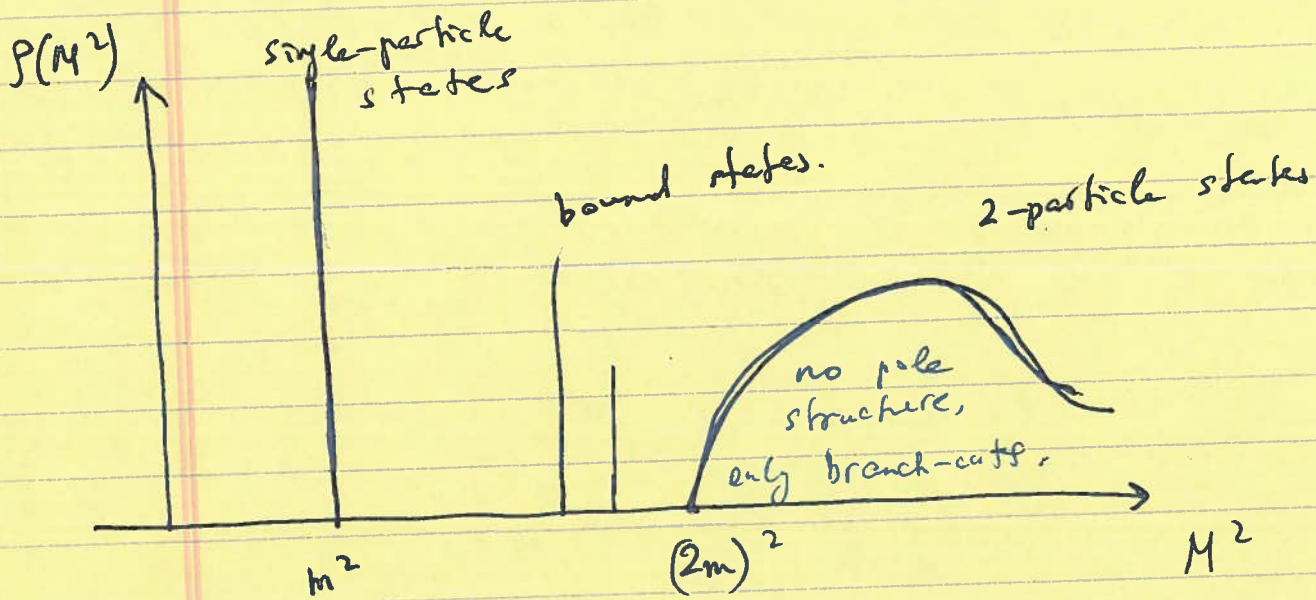 ρ(M²)
single-particle
states
bound states.
2-particle states
no pole
structure,
only branch-cuts.
m²
(2m)²
M²